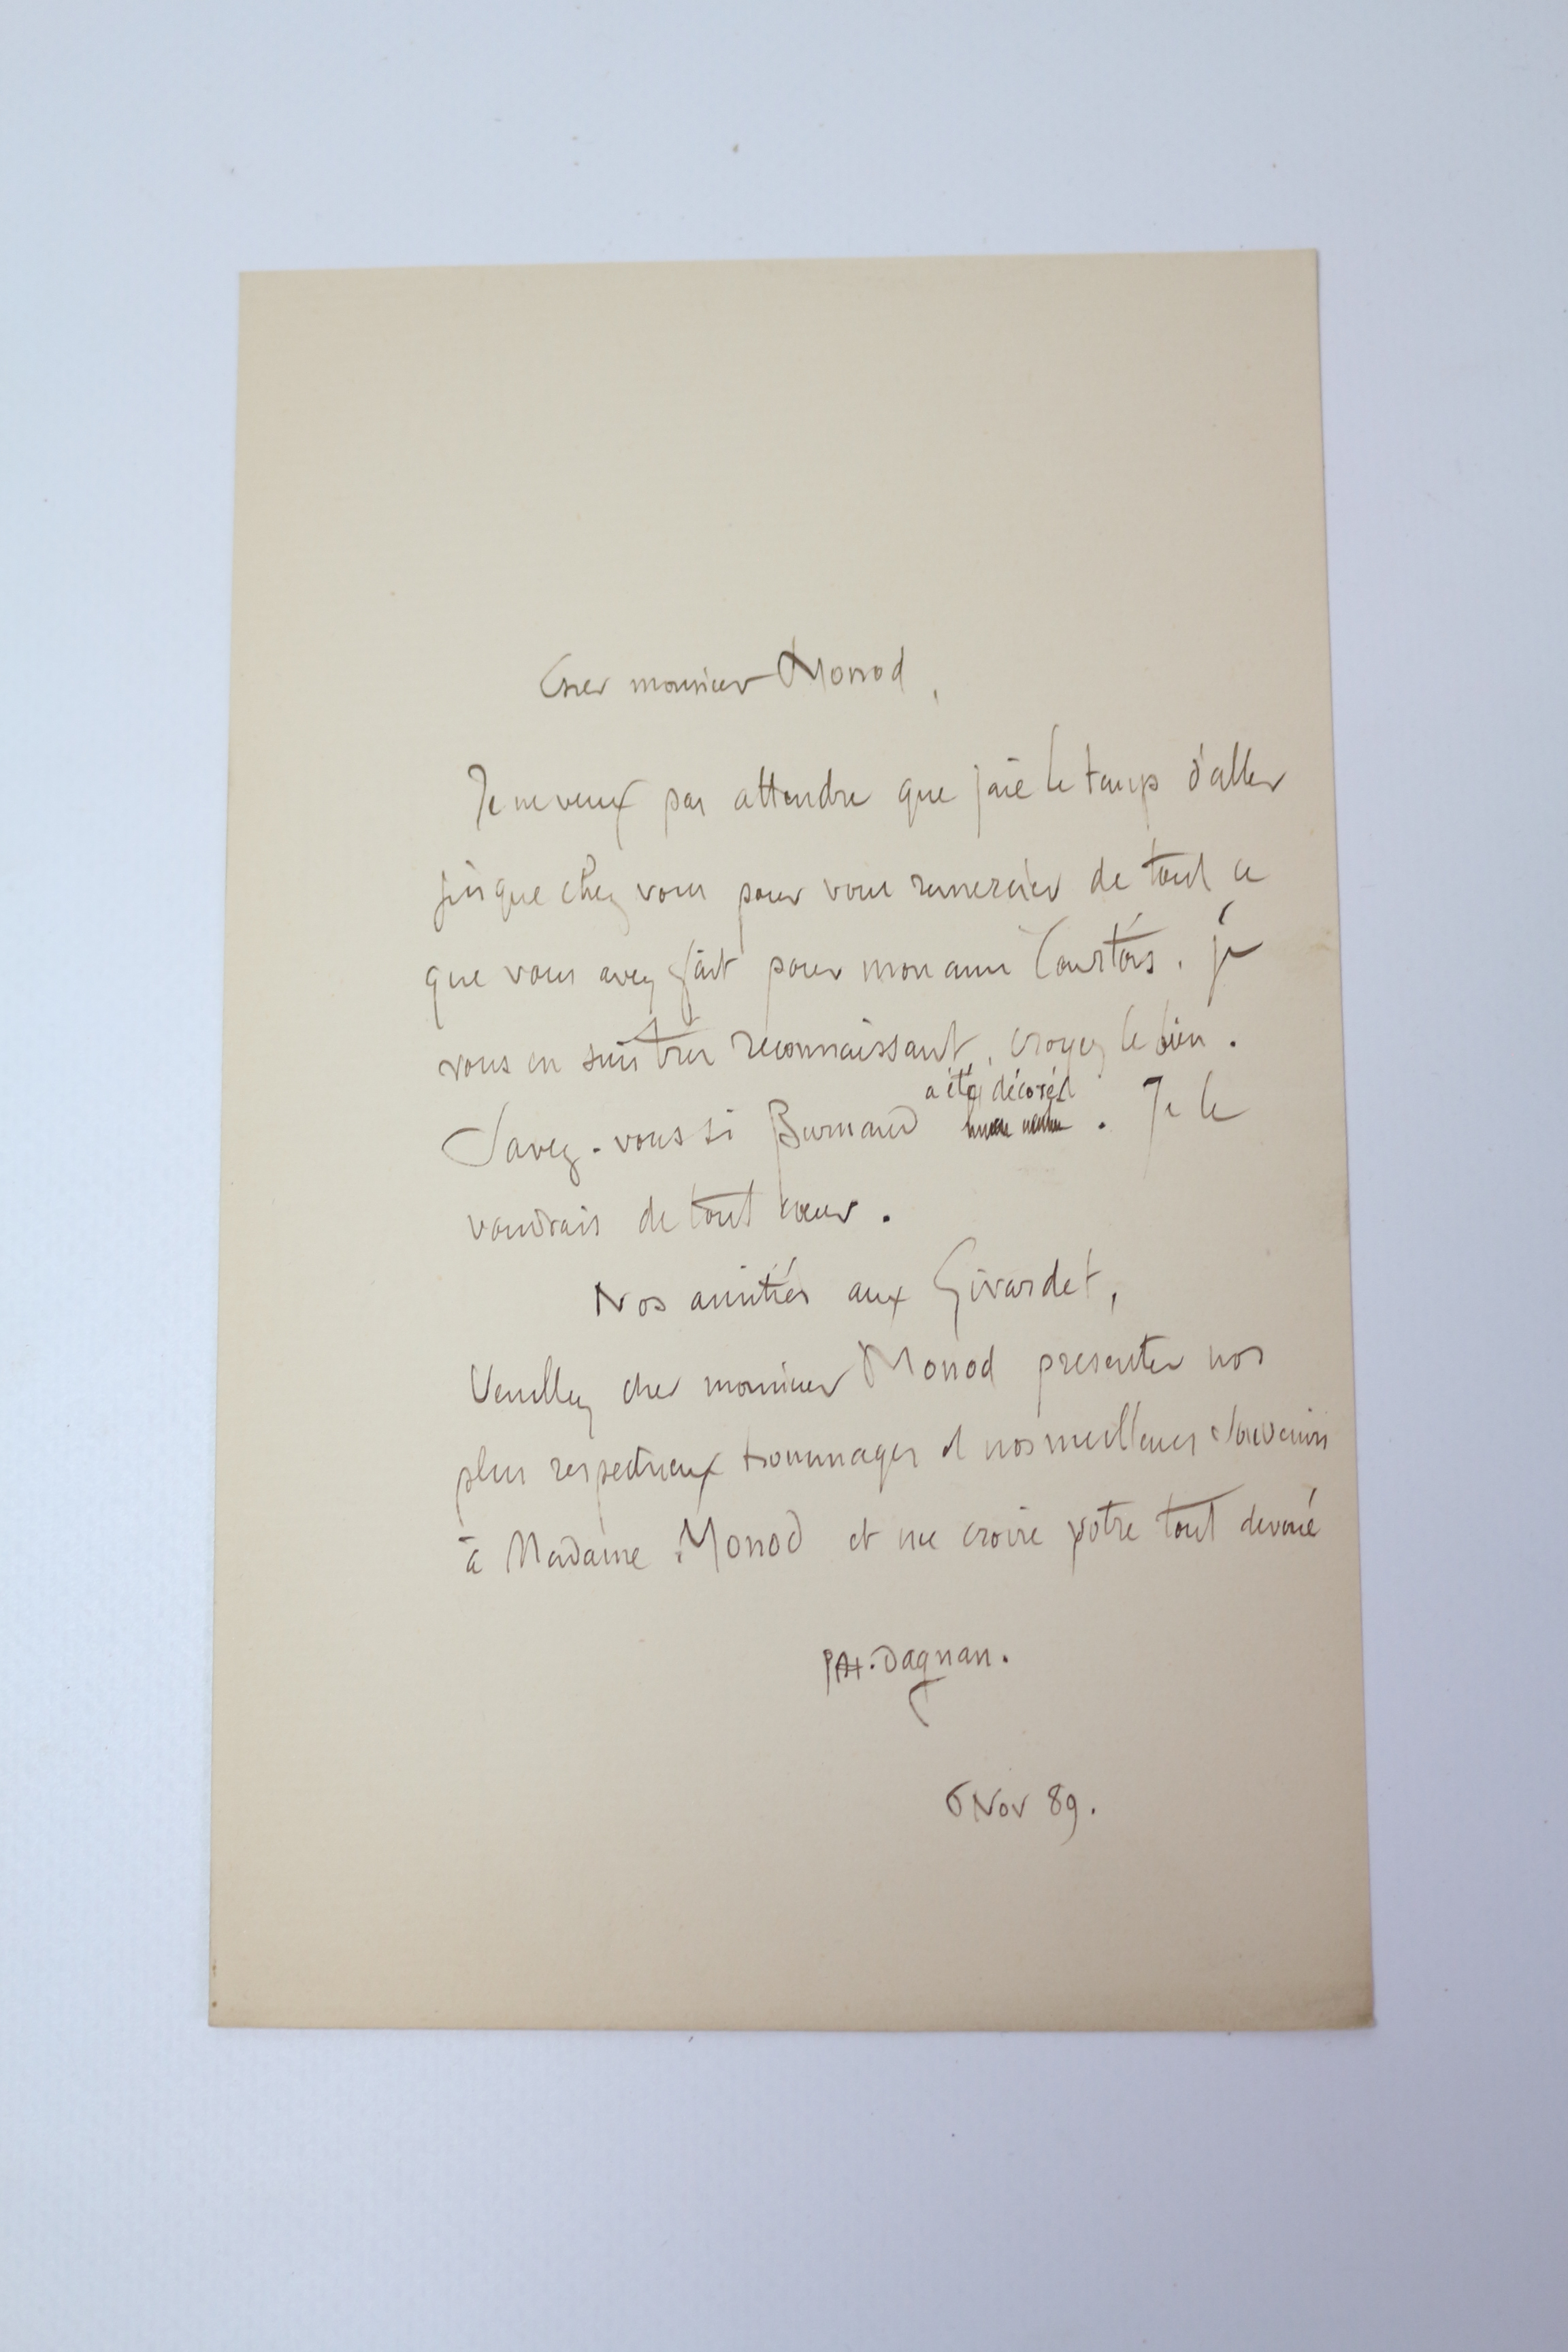 Cher monsieur Monod,
Je ne veux pas attendre que j'aie le temps d'aller
jusque chez vous pour vous remercier de tout ce
que vous avez fait pour mon ami Courtois. je
vous en suis très reconnaissant, croyez le bien.
a été décoré
Savez-vous si Burnand . Je le
voudrais de tout cœur.
Nos amitiés aux Girardet,
Veuillez cher monsieur Monod presenter nos
plus respectueux hommages et nos meilleurs souvenirs
à Madame Monod et me croire votre tout devoué
PAJ. Dagnan.
6 Nov 89.